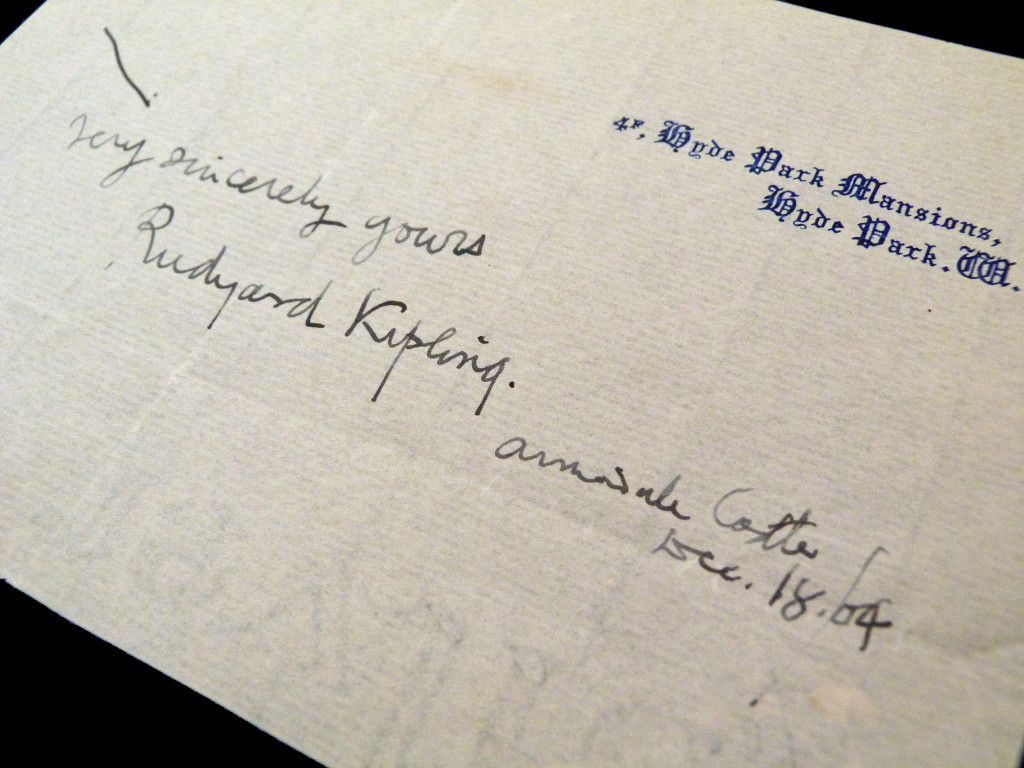 4F, Hyde Park Mansions,
Hyde Park. W.
very sincerely yours
Rudyard Kipling.
Armadale Castle
Dec. 18. /04